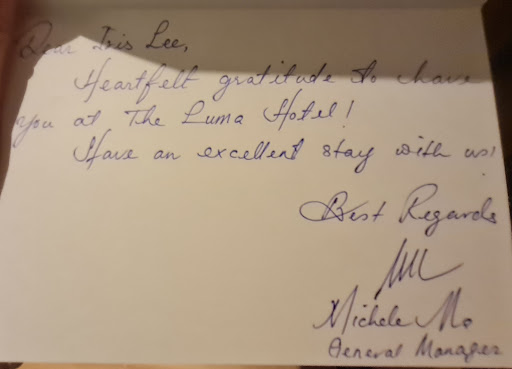 Dear Iris Lee,
Heartfelt gratitude to have
you at The Luma Hotel!
Have an excellent stay with us!
Best Regards
Michele Mo
General Manager